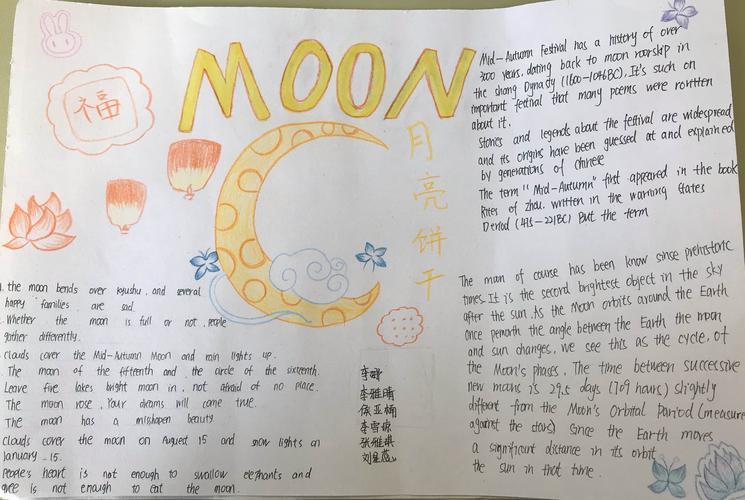 MOON
福
月
亮
饼
干
Mid-Autumn Festival has a history of over
3000 years, dating back to moon worship in
the Shang Dynasty (1600-1046BC), It's such an
important festival that many poems were written
about it.
Stories and legends about the festival are widespread
and its origins have been guessed at and explained
by generations of Chinese
The term "Mid-Autumn" first appeared in the book
Rites of Zhou. written in the warring States
Period (475-221BC) But the term
The moon of course has been know sinse prehistoric
times. It is the second brightest object in the sky
after the sun. As the Moon orbits around the Earth
once permonth the angle between the Earth the moon
and sun changes, we see this as the cycle, of
the Moon's phases, The time between successive
new moons is 29.5 days (709 hours) slightly
different from the Moon's Orbital Period (measure
against the stars) since the Earth moves
a significant distance in its orbit
the sun in that time.
. the moon bends over kyushu, and several
happy families are sad
. Whether the moon is full or not, people
gather differently.
Clouds cover the Mid-Autumn Moon and rain lights up.
The moon of the fifteenth and the circle of the sixteenth.
Leave five lakes bright moon in, not afraid of no place.
The moon rose, Your dreams will come true.
The moon has a misshapen beauty
Clouds cover the moon on August 15 and snow lights on
January 15.
People's heart is not enough to swallow elephants and
is not enough to eat the moon.
李雅晴
李雪
张雅琪